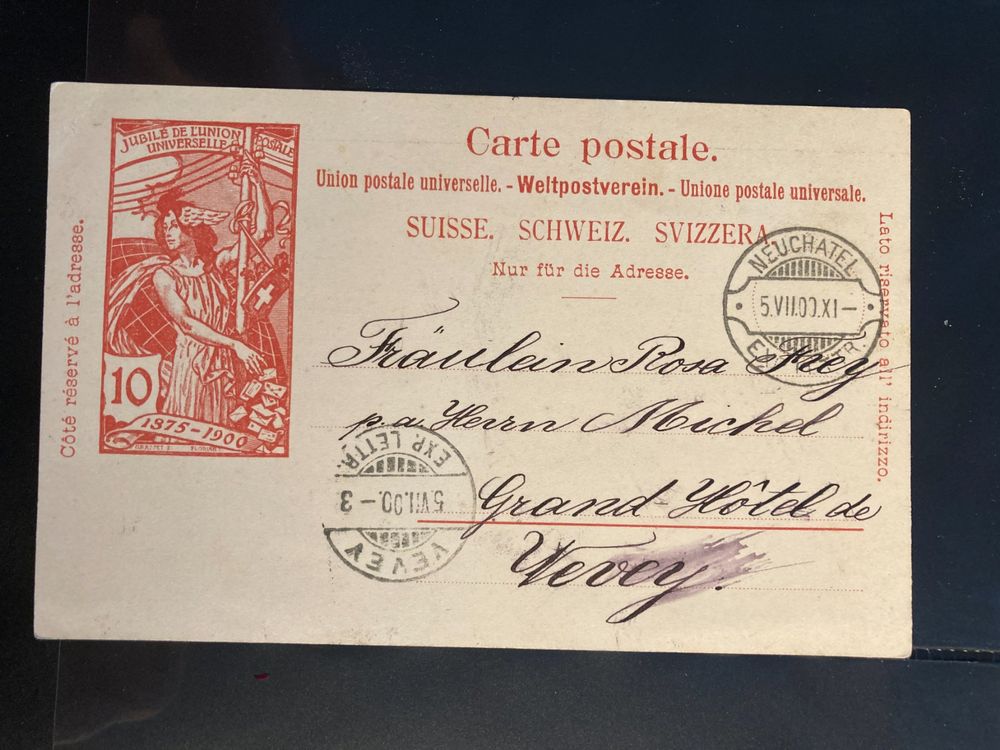 JUBILÉ DE L'UNION
UNIVERSELLE POSTALE
10
1875-1900
FLORIAN
Côté réservé à l'adresse.
Carte postale.
Union postale universelle. - Weltpostverein. - Unione postale universale.
SUISSE. SCHWEIZ. SVIZZERA
Nur für die Adresse.
Lato riservato all' indirizzo.
NEUCHATEL
5.VII.00.XI-
Fräulein Rosa Frey
p. a. Herrn Michel
Grand-Hôtel de
Vevey.
VEVEY
5.VII.00.-3
EXP. LETTR.